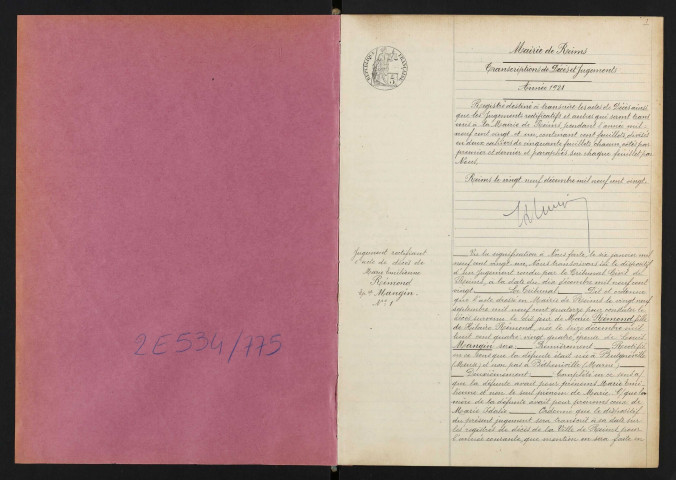 2E534/175
1
Mairie de Reims
Transcriptions de Décès et Jugements
Année 1921
Registre destiné à transcrire les actes de Décès ainsi
que les Jugements rectificatifs et autres qui seront trans
mis à la Mairie de Reims pendant l'année mil
neuf cent vingt et un, contenant cent feuillets divisés
en deux cahiers de cinquante feuillets chacun, cotés par
premier et dernier et paraphés sur chaque feuillet par
Nous
Reims le vingt neuf décembre mil neuf cent vingt
Jugement rectifiant
l'acte de décès de
Marie
Rémond
Ep. Mangin
N° 1
Vu la signification à Nous faite, le six janvier mil
neuf cent vingt un, Nous transcrivons ici le dispositif
d'un Jugement rendu par le Tribunal Civil de
Reims, à la date du dix décembre mil neuf cent
vingt Le Tribunal Dit et ordonne
que l'acte dressé en Mairie de Reims le vingt neuf
septembre mil neuf cent quatorze pour constater le
décès survenu le dit jour de Marie Rémond, fille
de Hilaire Rémond, née le seize décembre mil
huit cent quatre vingt quatre, épouse de
Mangin sera Premièrement Rectifié
en ce sens que la défunte était née à
(Meuse) et non pas à Bétheniville (Marne)
Deuxièmement Complété en ce sens
que la défunte avait pour prénoms Marie
et non le seul prénom de Marie que la
mère de la défunte avait pour prénoms ceux de
Marie Ordonne que le dispositif
du présent jugement sera transcrit à sa date sur
les registres de décès de la Ville de Reims pour
l'année courante, que mention en sera faite en